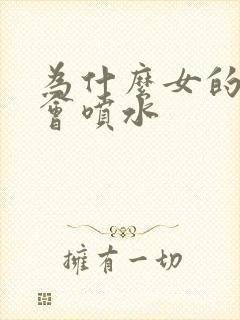 為什麼女的
會噴水
擁有一切